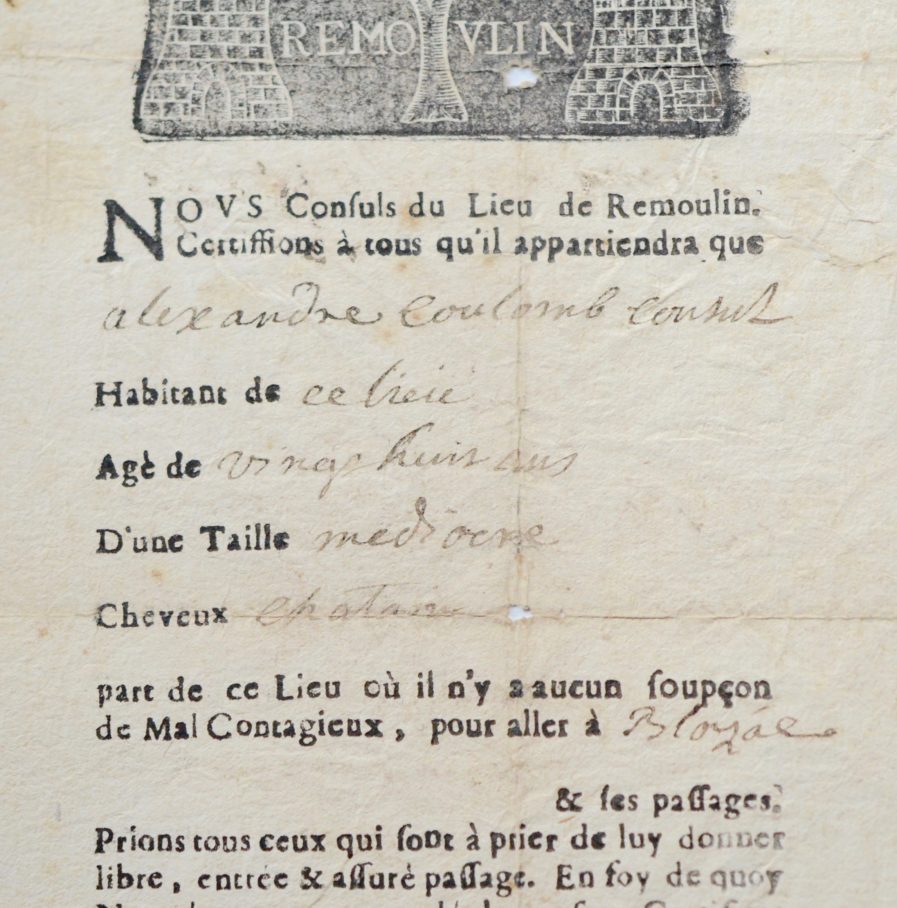 REMOVLIN
NOVS Conſuls du Lieu de Remoulin.
Certiffions à tous qu'il appartiendra que
alexandre Coulomb Consul
Habitant de ce lieu
Agè de vingt huit ans
D'une Taille mediocre
Cheveux chatain
part de ce Lieu où il n'y a aucun ſoupçon
de Mal Contagieux, pour aller à Blozac
& ſes paſſages.
Prions tous ceux qui ſont à prier de luy donner
libre, entrée & aſſurè paſſage. En foy de quoy